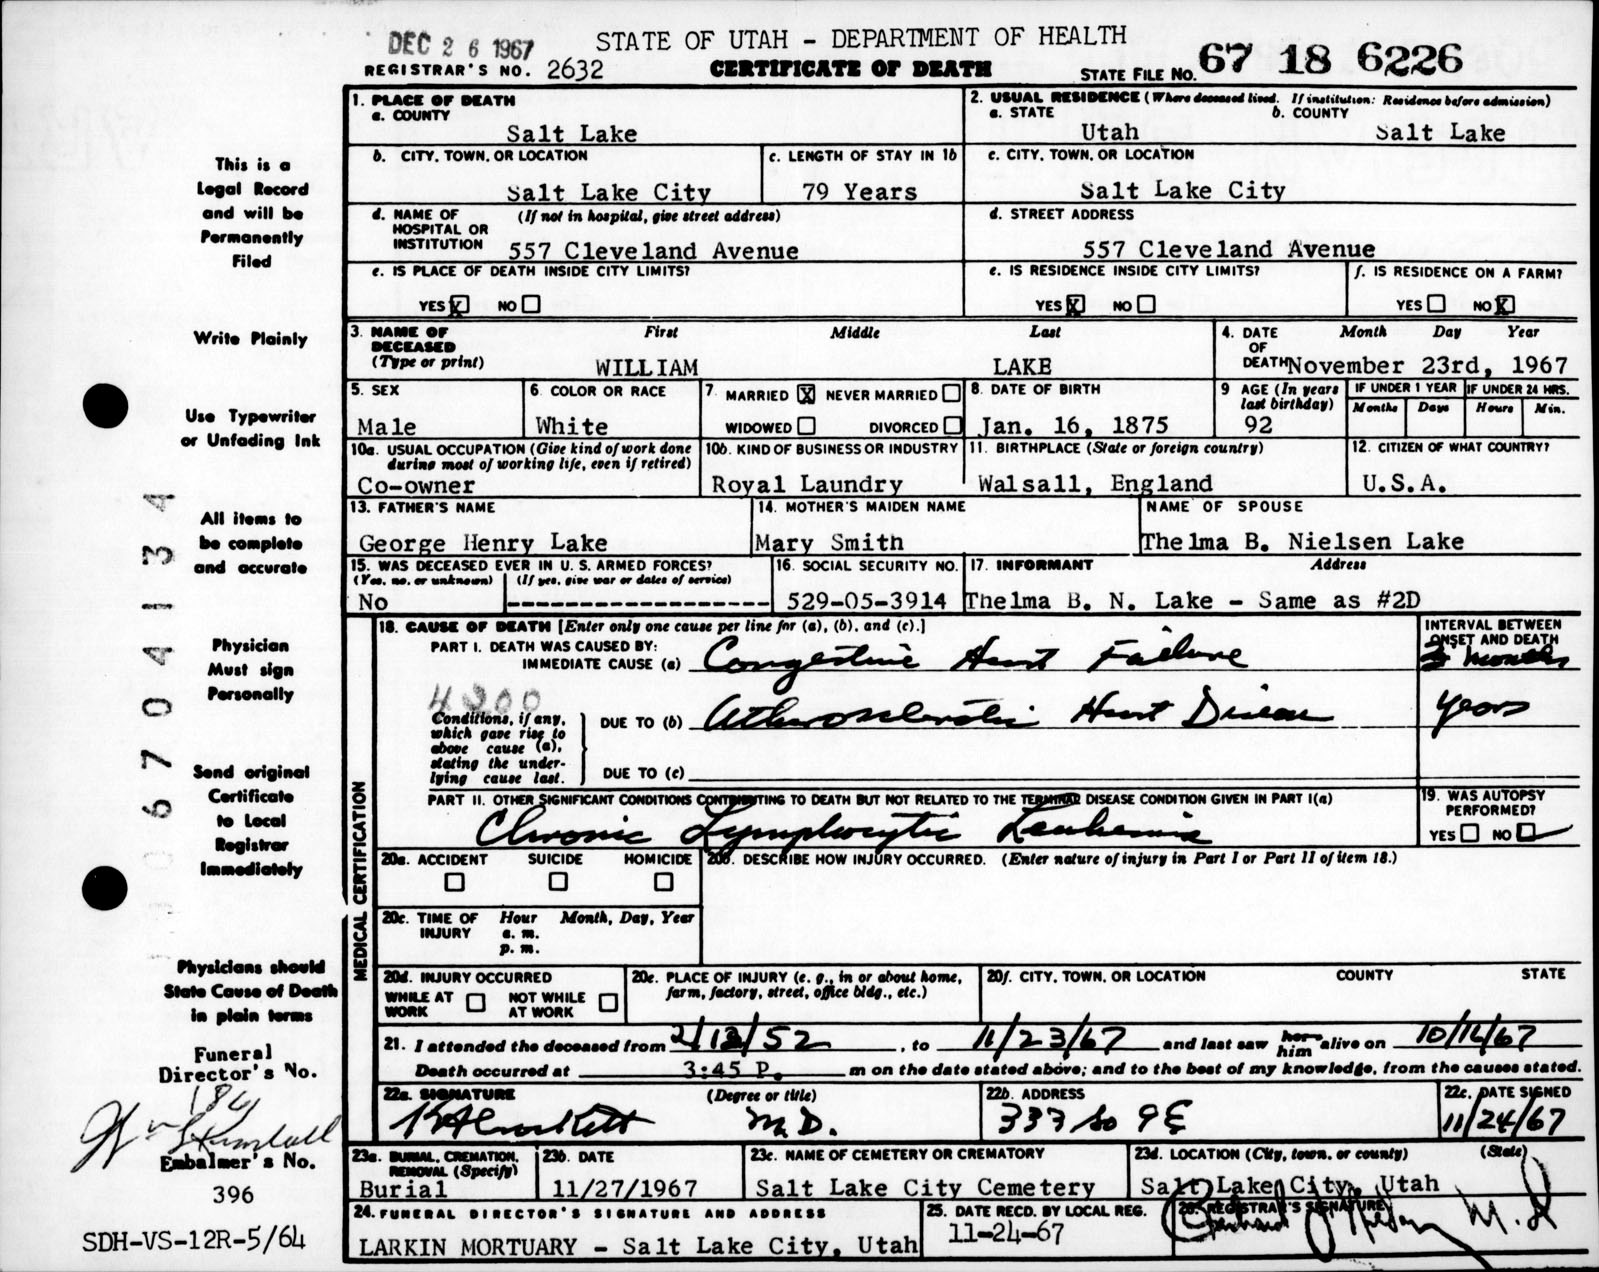 DEC 26 1967
STATE OF UTAH - DEPARTMENT OF HEALTH
REGISTRAR'S NO. 2632
CERTIFICATE OF DEATH
STATE FILE NO. 67 18 6226
This is a
Legal Record
and will be
Permanently
Filed
Write Plainly
Use Typewriter
or Unfading Ink
All items to
be complete
and accurate
Physician
Must sign
Personally
Send original
Certificate
to Local
Registrar
Immediately
Physicians should
State Cause of Death
in plain terms
Funeral
Director's No.
184
Embalmer's No.
396
SDH-VS-12R-5/64
1. PLACE OF DEATH
a. COUNTY
Salt Lake
2. USUAL RESIDENCE (Where deceased lived. If institution: Residence before admission)
a. STATE b. COUNTY
Utah Salt Lake
b. CITY, TOWN, OR LOCATION
Salt Lake City
c. LENGTH OF STAY IN 1b
79 Years
c. CITY, TOWN, OR LOCATION
Salt Lake City
d. NAME OF HOSPITAL OR INSTITUTION (If not in hospital, give street address)
557 Cleveland Avenue
d. STREET ADDRESS
557 Cleveland Avenue
e. IS PLACE OF DEATH INSIDE CITY LIMITS?
YES X NO
e. IS RESIDENCE INSIDE CITY LIMITS?
YES X NO
f. IS RESIDENCE ON A FARM?
YES NO X
3. NAME OF DECEASED (Type or print) First Middle Last
WILLIAM LAKE
4. DATE OF DEATH Month Day Year
November 23rd, 1967
5. SEX
Male
6. COLOR OR RACE
White
7. MARRIED X NEVER MARRIED
WIDOWED DIVORCED
8. DATE OF BIRTH
Jan. 16, 1875
9 AGE (In years last birthday)
92
IF UNDER 1 YEAR
Months Days
IF UNDER 24 HRS.
Hours Min.
10a. USUAL OCCUPATION (Give kind of work done during most of working life, even if retired)
Co-owner
10b. KIND OF BUSINESS OR INDUSTRY
Royal Laundry
11. BIRTHPLACE (State or foreign country)
Walsall, England
12. CITIZEN OF WHAT COUNTRY?
U.S.A.
13. FATHER'S NAME
George Henry Lake
14. MOTHER'S MAIDEN NAME
Mary Smith
NAME OF SPOUSE
Thelma B. Nielsen Lake
15. WAS DECEASED EVER IN U. S. ARMED FORCES?
(Yes, no, or unknown) (If yes, give war or dates of service)
No --------------------
16. SOCIAL SECURITY NO.
529-05-3914
17. INFORMANT Address
Thelma B. N. Lake - Same as #2D
MEDICAL CERTIFICATION
18. CAUSE OF DEATH [Enter only one cause per line for (a), (b), and (c).]
INTERVAL BETWEEN ONSET AND DEATH
PART I. DEATH WAS CAUSED BY:
IMMEDIATE CAUSE (a) Congestive Heart Failure
months
4200
Conditions, if any, which gave rise to above cause (a), stating the underlying cause last.
DUE TO (b) Atherosclerotic Heart Disease
years
DUE TO (c)
PART II. OTHER SIGNIFICANT CONDITIONS CONTRIBUTING TO DEATH BUT NOT RELATED TO THE TERMINAL DISEASE CONDITION GIVEN IN PART I(a)
Chronic Lymphocytic Leukemia
19. WAS AUTOPSY PERFORMED?
YES NO
20a. ACCIDENT SUICIDE HOMICIDE
20b. DESCRIBE HOW INJURY OCCURRED. (Enter nature of injury in Part I or Part II of item 18.)
20c. TIME OF INJURY Hour Month, Day, Year
a. m.
p. m.
20d. INJURY OCCURRED
WHILE AT WORK NOT WHILE AT WORK
20e. PLACE OF INJURY (e. g., in or about home, farm, factory, street, office bldg., etc.)
20f. CITY, TOWN, OR LOCATION COUNTY STATE
21. I attended the deceased from 2/13/52, to 11/23/67 and last saw her him alive on 10/16/67
Death occurred at 3:45 P. m on the date stated above; and to the best of my knowledge, from the causes stated.
22a. SIGNATURE (Degree or title)
M.D.
22b. ADDRESS
333 So 9 E
22c. DATE SIGNED
11/24/67
23a. BURIAL, CREMATION, REMOVAL (Specify)
Burial
23b. DATE
11/27/1967
23c. NAME OF CEMETERY OR CREMATORY
Salt Lake City Cemetery
23d. LOCATION (City, town, or county) (State)
Salt Lake City, Utah
24. FUNERAL DIRECTOR'S SIGNATURE AND ADDRESS
LARKIN MORTUARY - Salt Lake City, Utah
25. DATE RECD. BY LOCAL REG.
11-24-67
26. REGISTRAR'S SIGNATURE
M.D.